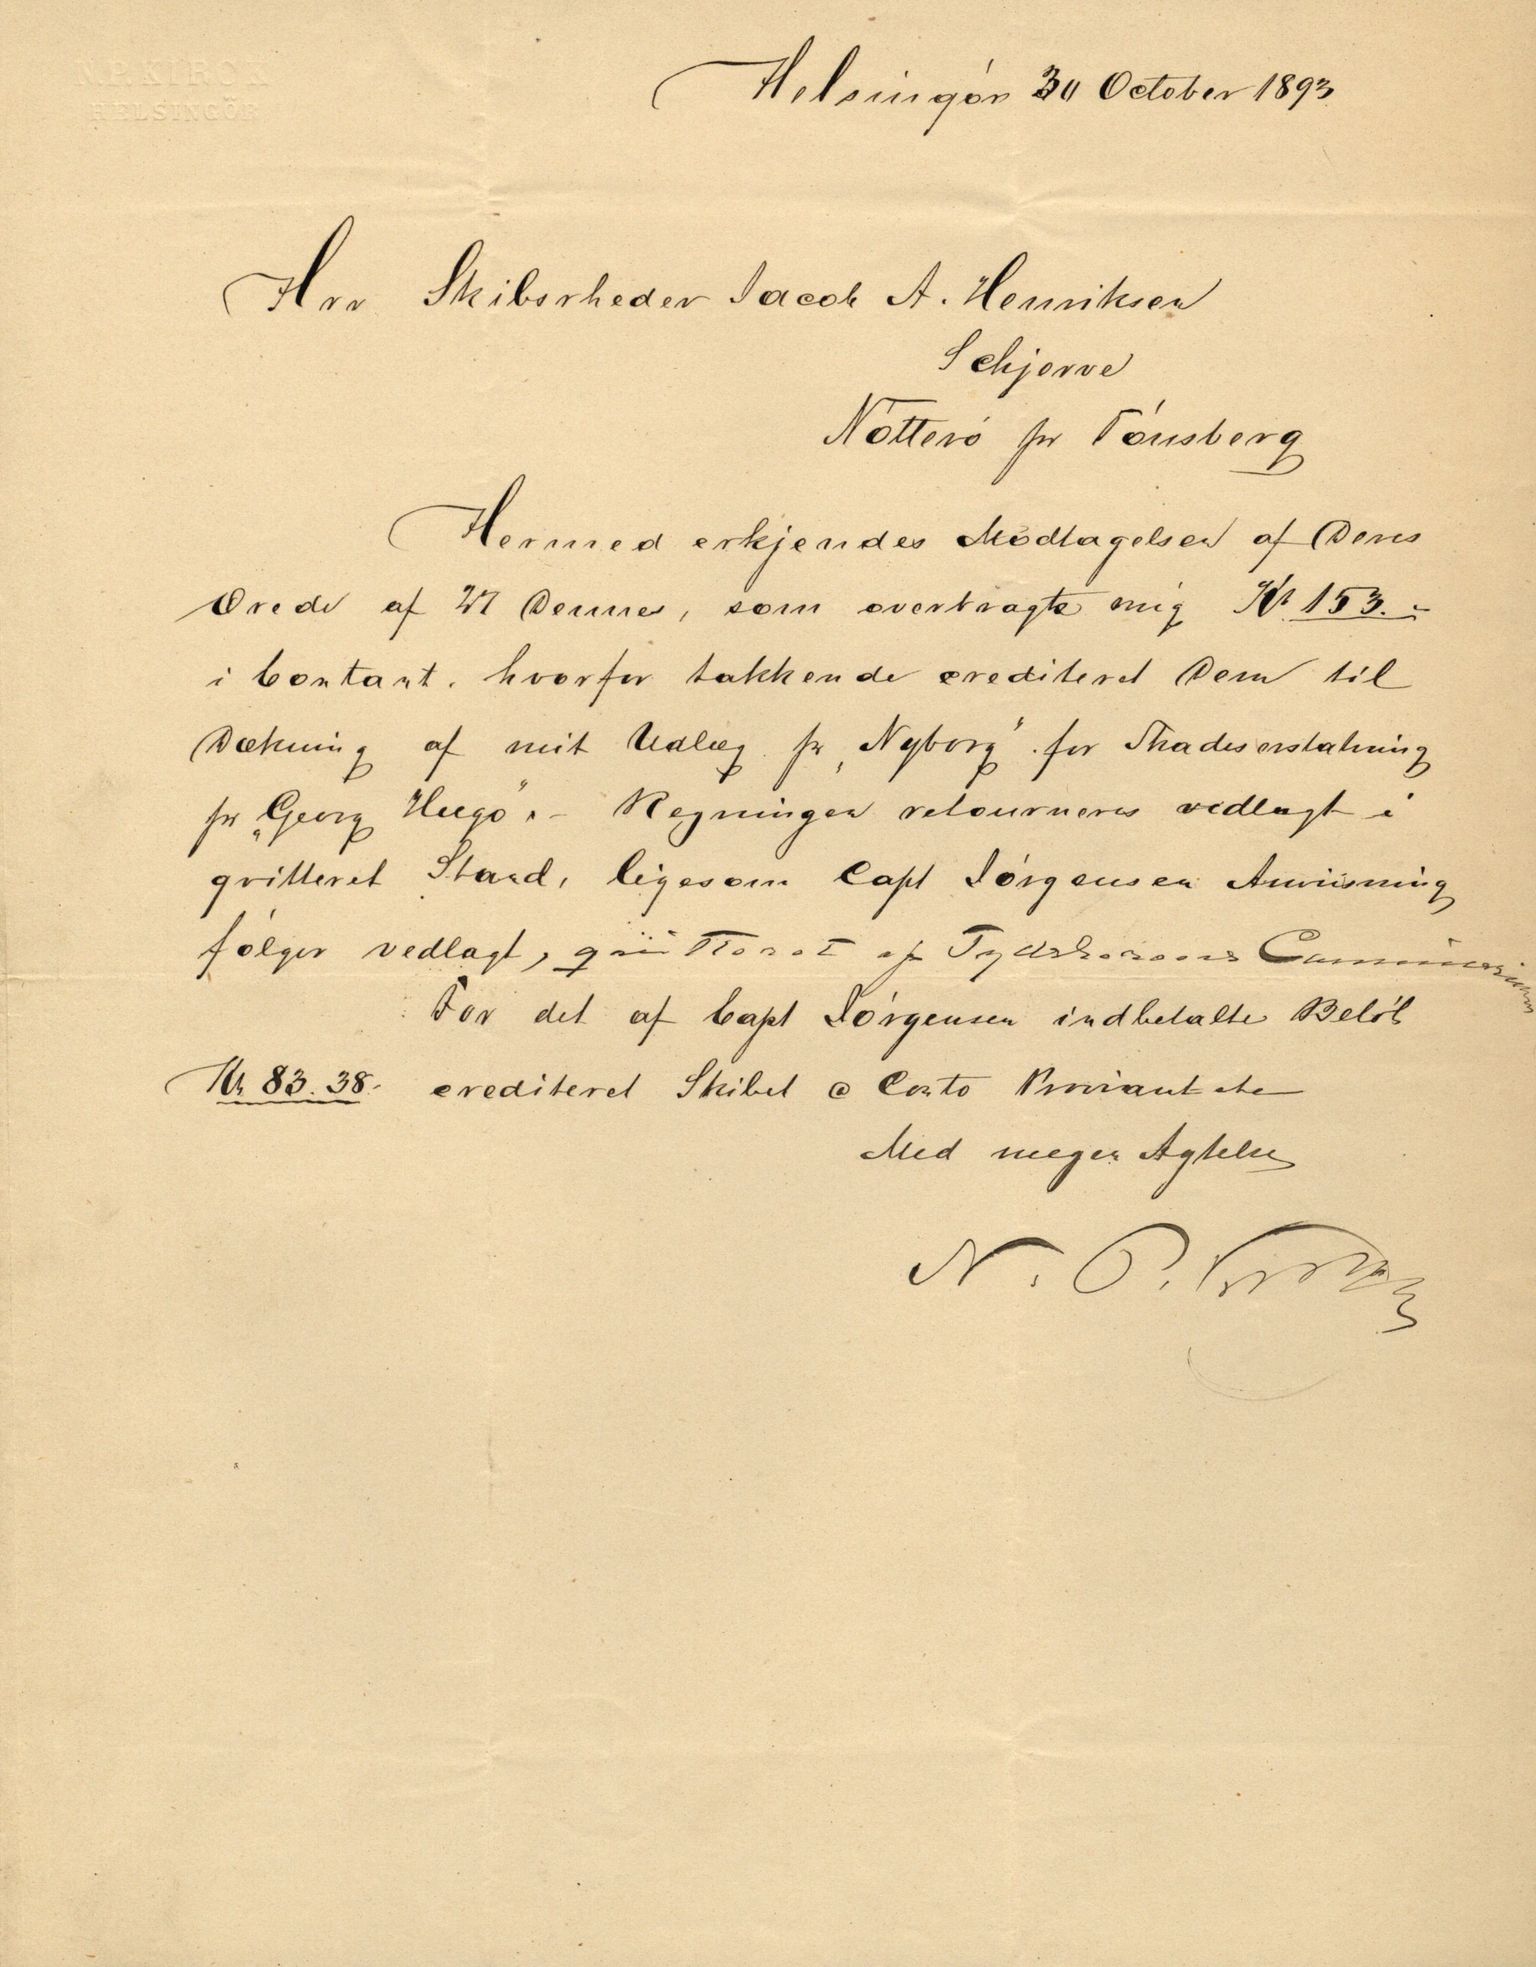 HELSINGÖR
Helsingör 30 October 1893
Hrr Skibsrheder Jacob A. Henriksen
Schjerve
Nötterö pr Tönsberg
Hermed erkjendes Modtagelsen af Deres
Ærede af 27 Dennes, som overbragte mig Kr 153.-
i Contant. hvorfor takkende crediteret Dem til
Dækning af mit Udlæg pr „Nyborg" for Skadeserstatning
pr „Georg Hugo". - Regningen retourneres vedlagt i
qvitteret Stand, ligesom Capt Jörgensen Anviisning
fölger vedlagt, qviitteret af
For det af Capt Jörgensen indbetalte Belöb
Kr 83.38. crediteret Skibet a Conto Proviant etc
Med megen Agtelse
N. P.